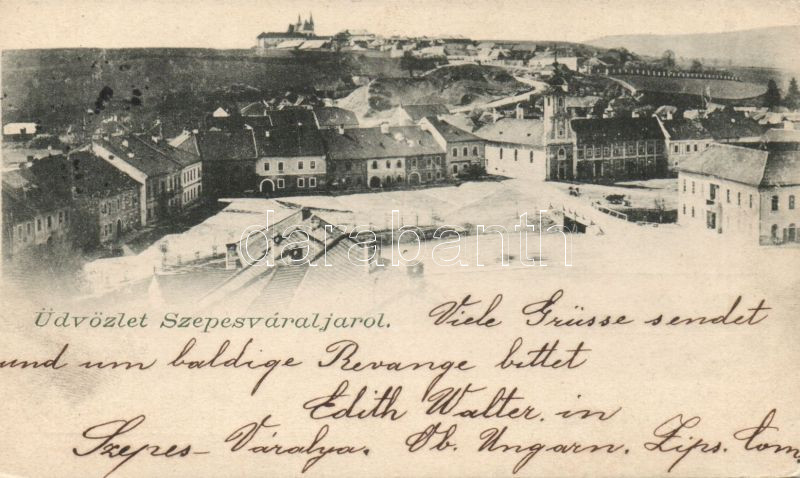 darabanth
Üdvözlet Szepesváraljarol.
Viele Grüsse sendet
und um baldige Revange bittet
Edith Walter. in
Szepes-Váralya. Ob. Ungarn. Zips. Com.